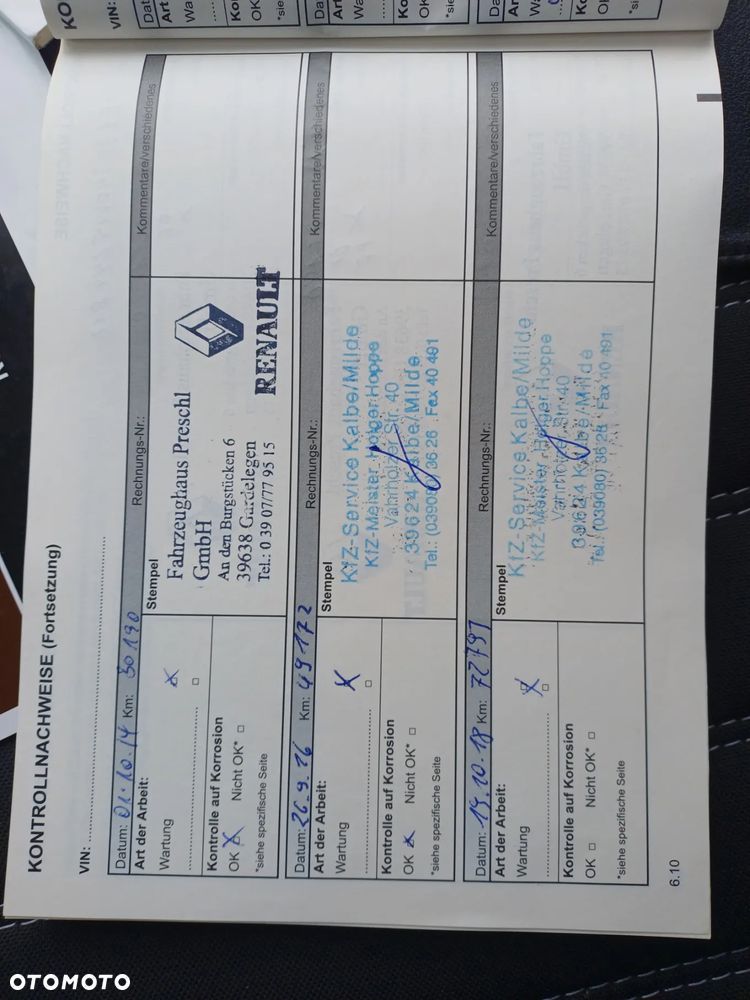 KONTROLLNACHWEISE (Fortsetzung)
VIN:
Datum: 01.10.14 Km: 30190 Rechnungs-Nr.: Kommentare/verschiedenes
Art der Arbeit:
Wartung
Kontrolle auf Korrosion
OK Nicht OK*
*siehe spezifische Seite
Stempel
Fahrzeughaus Preschl
GmbH
An den Burgstücken 6
39638 Gardelegen
Tel.: 0 39 07/77 95 15
RENAULT
Datum: 26.9.16 Km: 49172 Rechnungs-Nr.: Kommentare/verschiedenes
Art der Arbeit:
Wartung
Kontrolle auf Korrosion
OK Nicht OK*
*siehe spezifische Seite
Stempel
KfZ-Service Kalbe/Milde
KfZ-Meister Holger Hoppe
Vahrholzer Str. 40
39624 Kalbe/Milde
Tel.: (039080) 36 26 Fax 40 491
Datum: 19.10.18 Km: 72797 Rechnungs-Nr.: Kommentare/verschiedenes
Art der Arbeit:
Wartung
Kontrolle auf Korrosion
OK Nicht OK*
*siehe spezifische Seite
Stempel
KfZ-Service Kalbe/Milde
KfZ-Meister Holger Hoppe
Vahrholzer Str. 40
39624 Kalbe/Milde
Tel.: (039080) 36 26 Fax 40 491
6.10
OTOMOTO